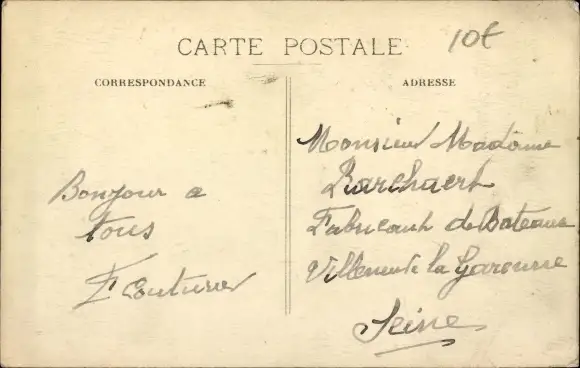 CARTE POSTALE
10€
CORRESPONDANCE
ADRESSE
Bonjour a
tous
F Couturier
Monsieur Madame
Barchaert
Fabricant de Bateaux
Villeneuve la Garenne
Seine